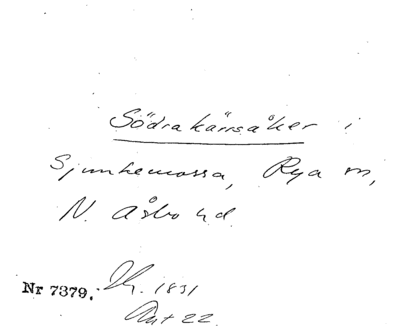 Södrakärrsåker i
Sjunkemossa, Rya m,
N. Åsbo hd.
Nr 7379. 1831
Akt 22.